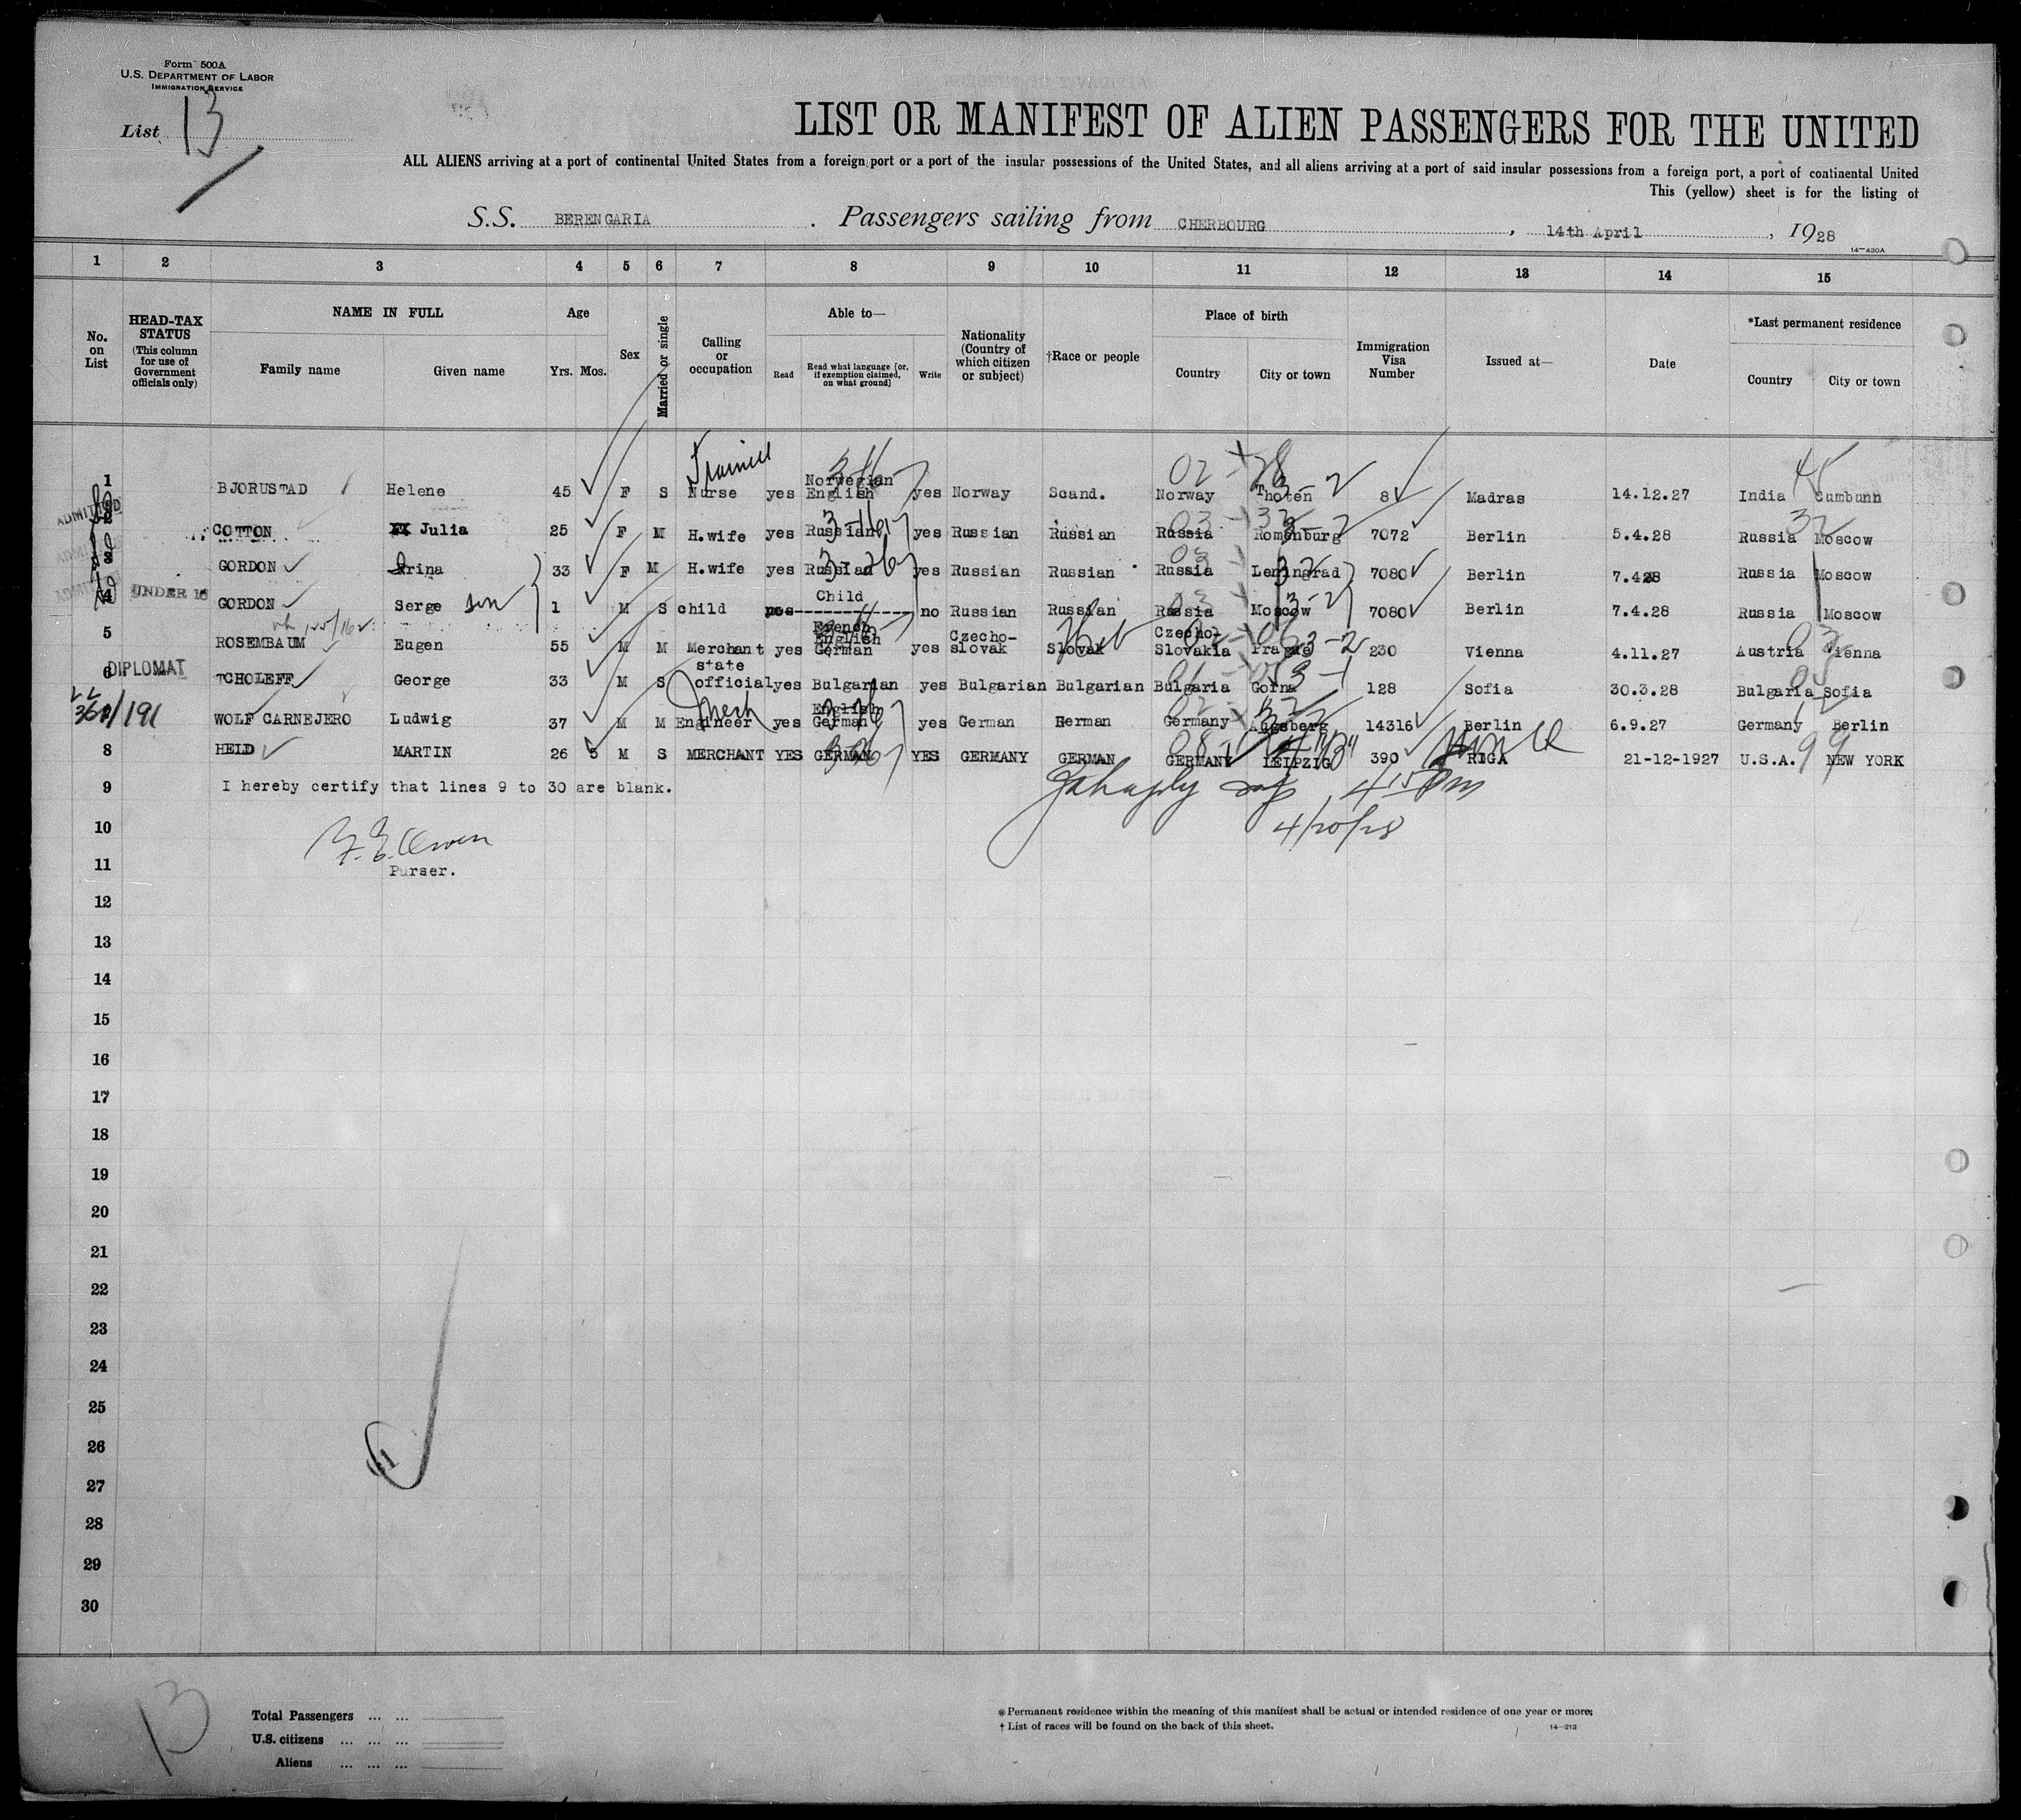 Form 500A
U.S. DEPARTMENT OF LABOR
IMMIGRATION SERVICE
List 13
LIST OR MANIFEST OF ALIEN PASSENGERS FOR THE UNITED
ALL ALIENS arriving at a port of continental United States from a foreign port or a port of the insular possessions of the United States, and all aliens arriving at a port of said insular possessions from a foreign port, a port of continental United
This (yellow) sheet is for the listing of
S.S. BERENGARIA . Passengers sailing from CHERBOURG , 14th April , 1928
14—430A
1 2 3 4 5 6 7 8 9 10 11 12 13 14 15
No. on List
HEAD-TAX STATUS (This column for use of Government officials only)
NAME IN FULL
Family name Given name
Age
Yrs. Mos.
Sex
Married or single
Calling or occupation
Able to—
Read
Read what language [or, if exemption claimed, on what ground]
Write
Nationality (Country of which citizen or subject)
†Race or people
Place of birth
Country City or town
Immigration Visa Number
Issued at—
Date
*Last permanent residence
Country City or town
Trained 3-16 02 + 28 45
1 BJORUSTAD Helene 45 F S Nurse yes Norwegian English yes Norway Scand. Norway Thoten 8 Madras 14.12.27 India Cumbunn
ADMITTED
2 COTTON Julia 25 F M H.wife yes Russian yes Russian Russian Russia Romenburg 7072 Berlin 5.4.28 Russia Moscow
3 GORDON Irina 33 F M H.wife yes Russian yes Russian Russian Russia Leningrad 7080 Berlin 7.428 Russia Moscow
4 UNDER 16 GORDON Serge son 1 M S child Child no Russian Russian Russia Moscow 7080 Berlin 7.4.28 Russia Moscow
5 ROSEMBAUM Eugen 55 M M Merchant yes French English German yes Czecho-slovak Slovak Czecho-Slovakia Prague 230 Vienna 4.11.27 Austria Vienna
6 DIPLOMAT TCHOLEFF George 33 M S state official yes Bulgarian yes Bulgarian Bulgarian Bulgaria Gorna 128 Sofia 30.3.28 Bulgaria Sofia
/191 WOLF CARNEJERO Ludwig 37 M M Mech Engineer yes English German yes German German Germany Augsberg 14316 Berlin 6.9.27 Germany Berlin
8 HELD MARTIN 26 5 M S MERCHANT YES GERMAN YES GERMANY GERMAN GERMANY LEIPZIG 390 RIGA 21-12-1927 U.S.A. NEW YORK
9 I hereby certify that lines 9 to 30 are blank.
4/20/28
10
11 Purser.
12
13
14
15
16
17
18
19
20
21
22
23
24
25
26
27
28
29
30
13
Total Passengers ... ...
U.S. citizens ... ... ...
Aliens ... ... ...
* Permanent residence within the meaning of this manifest shall be actual or intended residence of one year or more.
† List of races will be found on the back of this sheet.
14—213